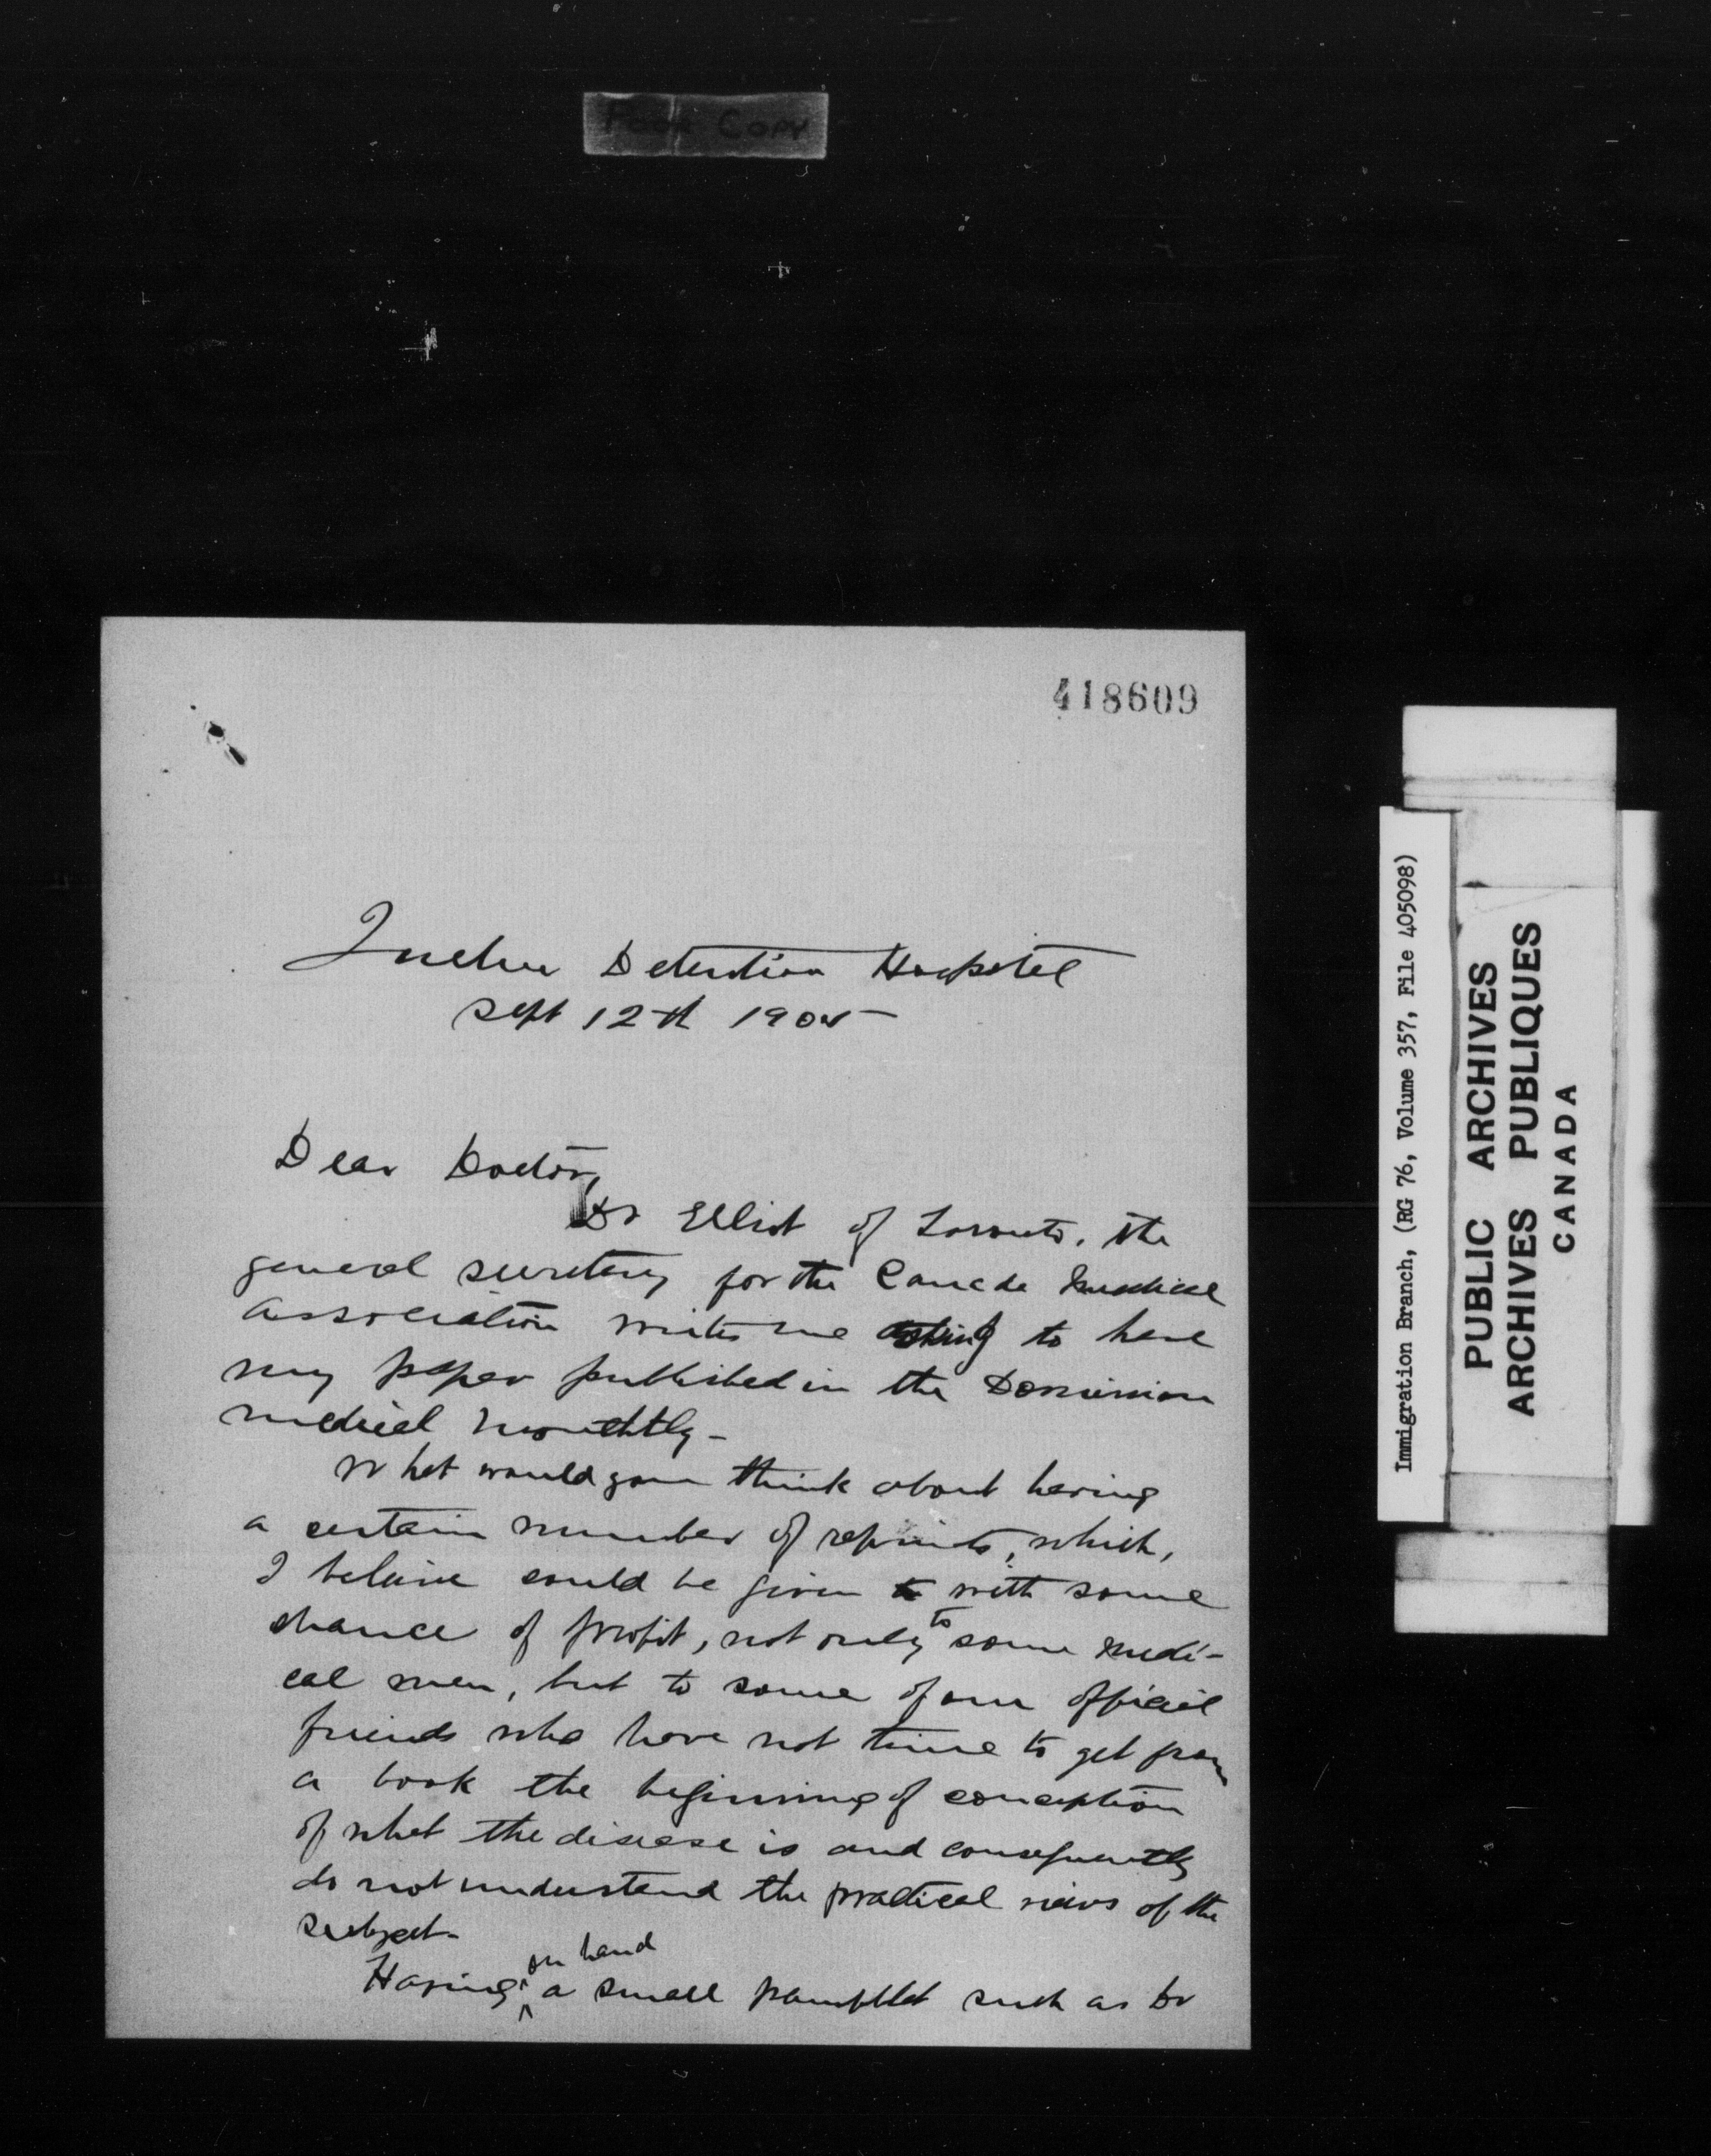 Poor Copy
418609
Quebec Detention Hospital
Sept 12th 1905
Dear Doctor,
Dr Elliot of Toronto, the
general secretary for the Canada Medical
Association writes me asking to have
my paper published in the Dominion
medical Monthly -
What would you think about having
a certain number of reprints, which,
I believe could be given with some
chance of profit, not only to some medi-
cal men, but to some of our official
friends who have not time to get from
a book the beginning of conception
of what the disease is and consequently
do not understand the practical views of the
subject -
Having on hand a small pamphlet such as Dr
Immigration Branch, (RG 76, Volume 357, File 405098)
PUBLIC ARCHIVES
ARCHIVES PUBLIQUES
CANADA